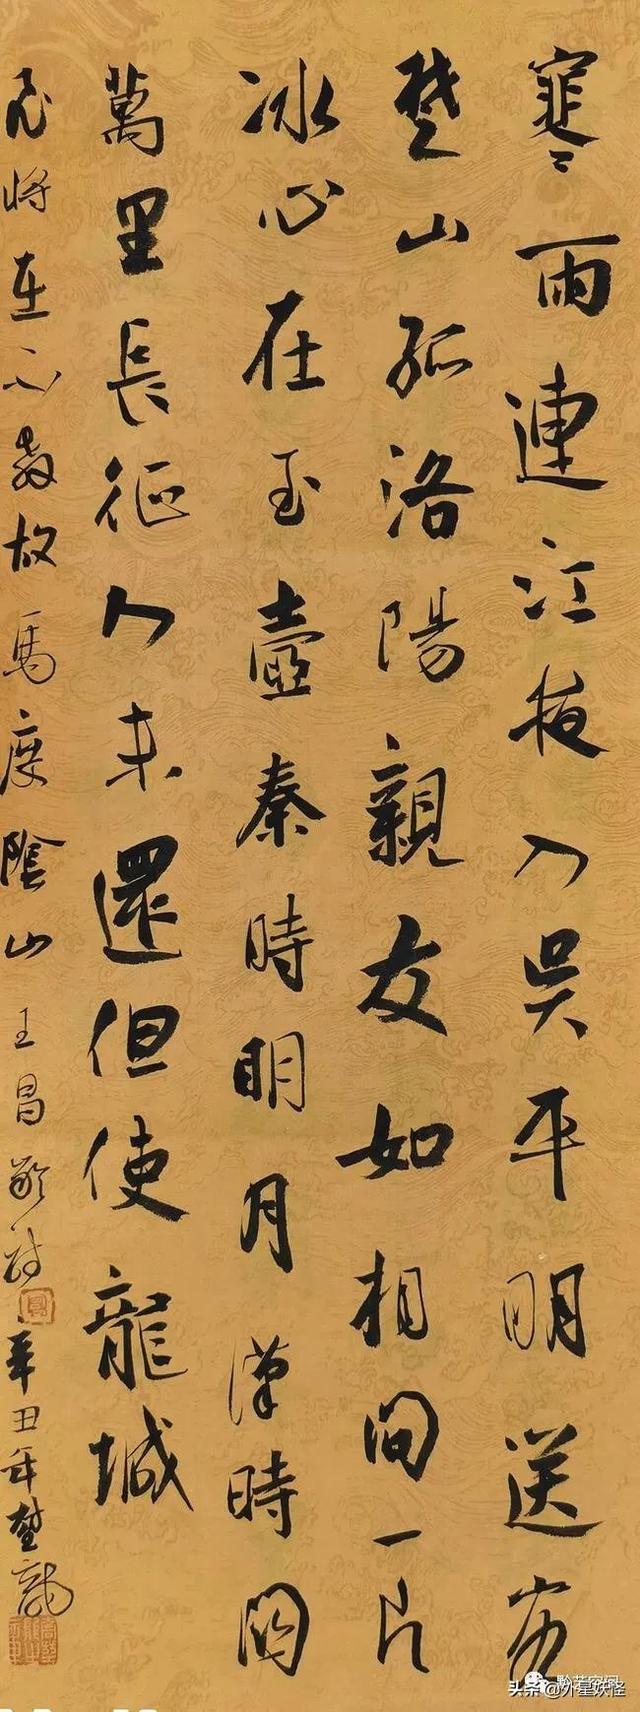 寒雨連江夜入吳平明送客
楚山孤洛陽親友如相問一片
冰心在玉壺秦時明月漢時關
萬里長征人未還但使龍城
飛將在不教故馬度陰山 王昌齡詩 辛丑年楚龍
黔艺空间
头条@外星妖怪